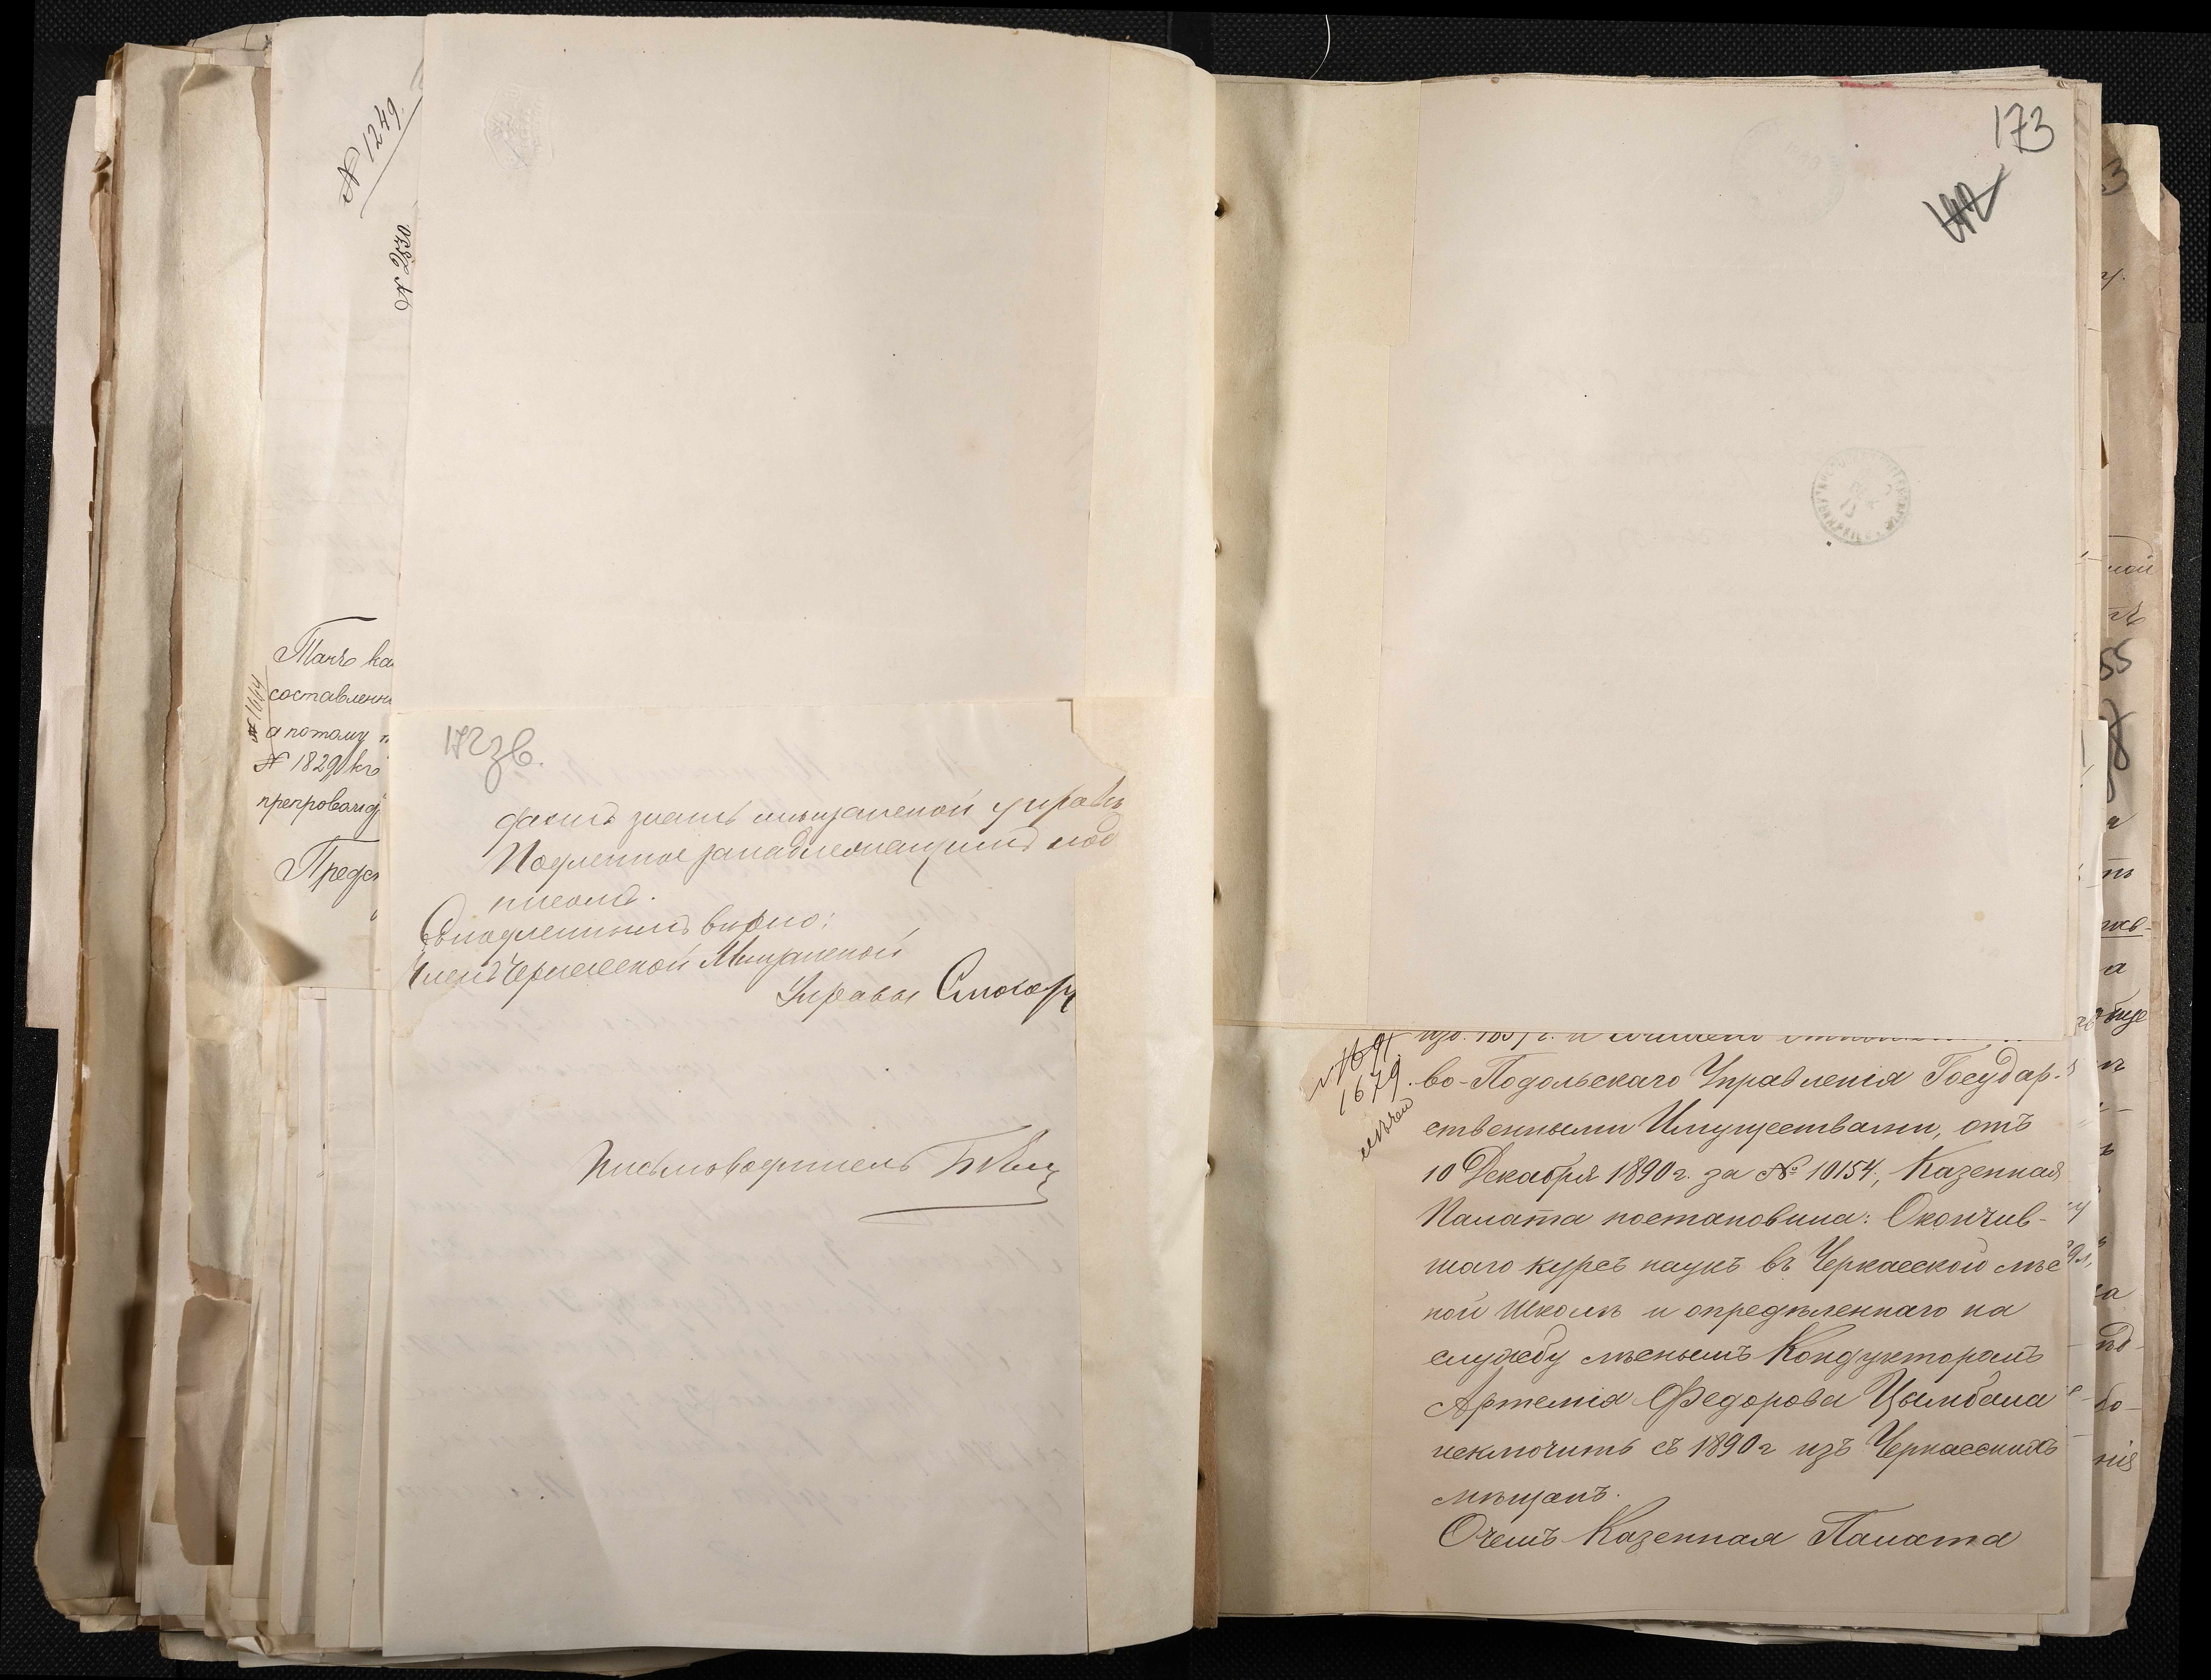 № 1249
№ 2530
Такъ ка
составленн
а потому
№ 1829 къ
препровожд
Предс
№ 1664
172 зв.
даетъ знать мѣщанской управѣ
Подленное за надлежащимъ под
писомъ.
Съ подленнымъ вѣрно:
Членъ Черкасской Мѣщанской
Управы
Письмоводитель
173
1679.
во-Подольскаго Управленія Государ-
ственными Имуществами, отъ
10 Декабря 1890 г. за № 10154, Казенная
Палата постановила: Окончив-
шаго курсъ наукъ въ Черкасской лѣс
ной Школѣ и опредѣленнаго на
службу лѣснымъ Кондукторомъ
Артемія Федорова Цымбала
исключить съ 1890 г изъ Черкасскихъ
мѣщанъ.
О чемъ Казенная Палата